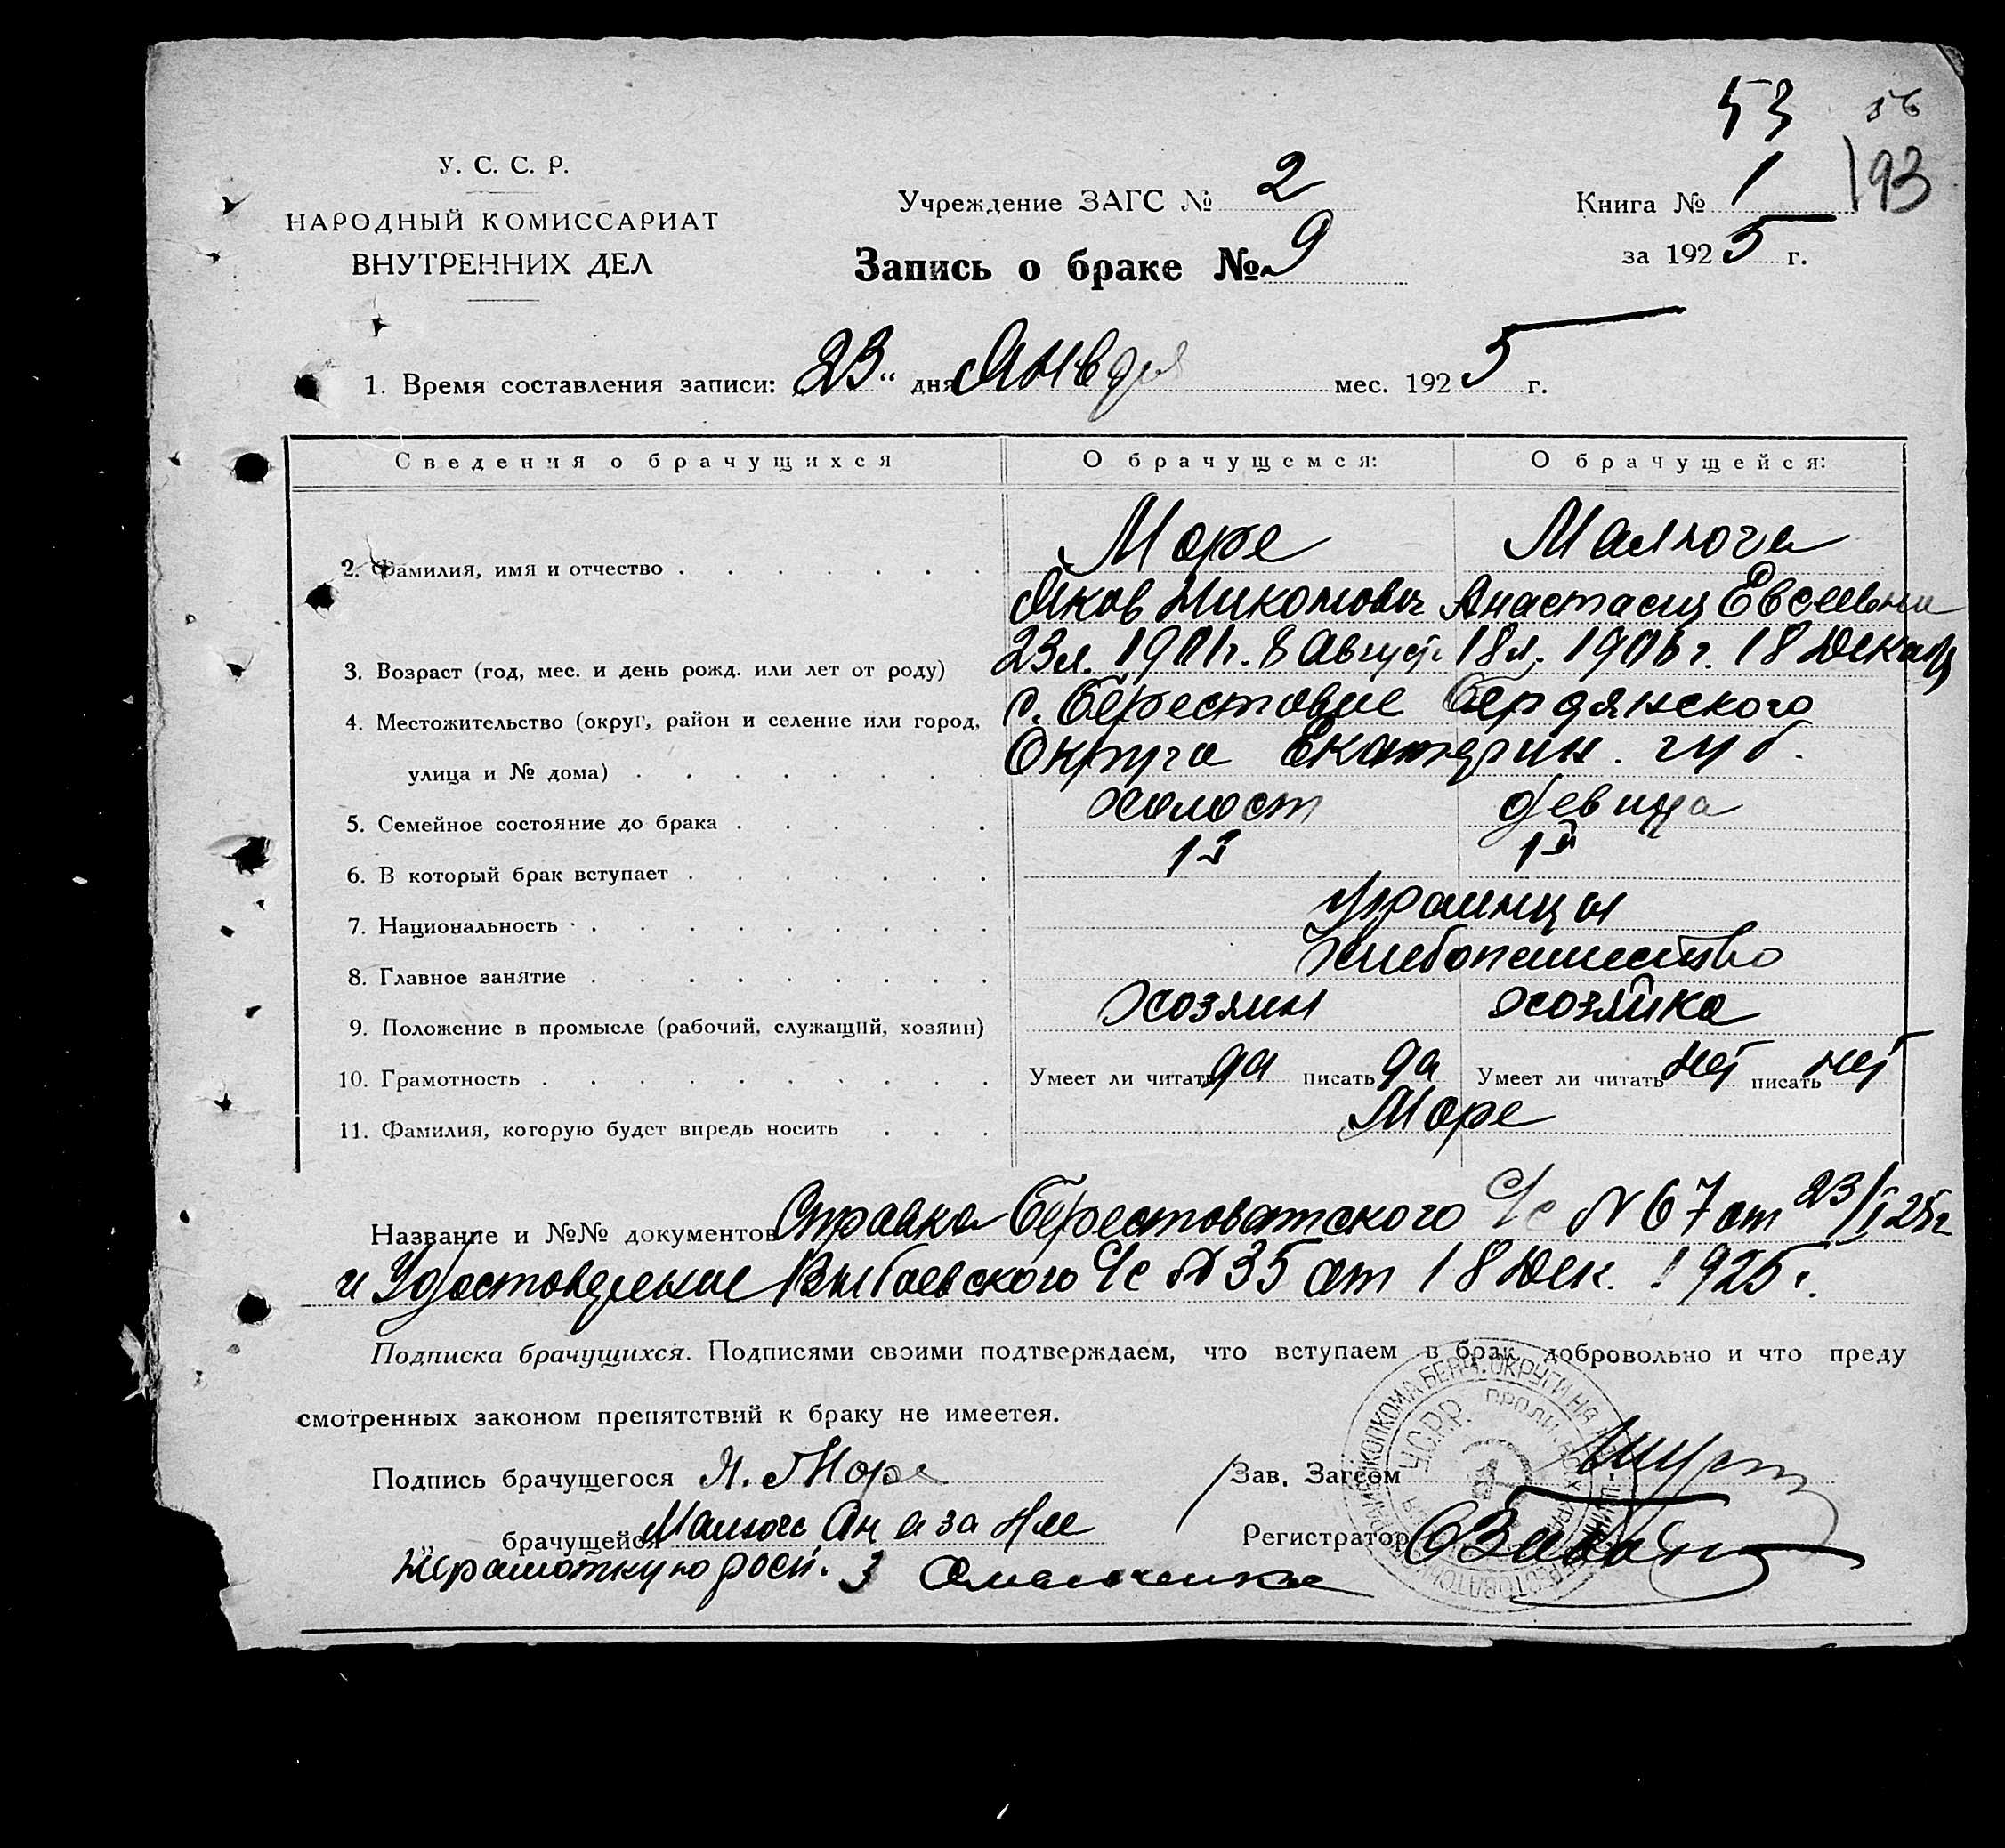 53 56
У. С. С. Р.
НАРОДНЫЙ КОМИССАРИАТ
ВНУТРЕННИХ ДЕЛ
Учреждение ЗАГС № 2
Книга № 1 193
Запись о браке № 9
за 1925 г.
1. Время составления записи: 23" дня Января мес. 1925 г.
Сведения о брачущихся О брачущемся: О брачущейся:
Море Малюга
2. Фамилия, имя и отчество
Яков Николович Анастасия Евсеевна
3. Возраст (год, мес. и день рожд. или лет от роду) 23 л. 1901 г. 8 Август 18 л. 1906 г. 18 Декабр
4. Местожительство (округ, район и селение или город, с. Берестовое Бердянского
улица и № дома) Округа Екатерин. губ.
5. Семейное состояние до брака холост девица
6. В который брак вступает 1й 1й
7. Национальность украинцы
8. Главное занятие Хлебопашество
9. Положение в промысле (рабочий, служащий, хозяин) хозяин хозяйка
10. Грамотность Умеет ли читать да писать да Умеет ли читать нет писать нет
11. Фамилия, которую будет впредь носить Море
Название и №№ документов Справка Берестоватского С/с № 67 от 23/I 25 г
и Удостоверение С/с № 35 от 18 Дек. 1925 г.
Подписка брачущихся. Подписями своими подтверждаем, что вступаем в брак добровольно и что преду
смотренных законом препятствий к браку не имеется.
Подпись брачущегося Я. Море Зав. Загсом
брачущейся Малюга Ан а за нее Регистратор
неграмотную росп.
У.С.Р.Р.